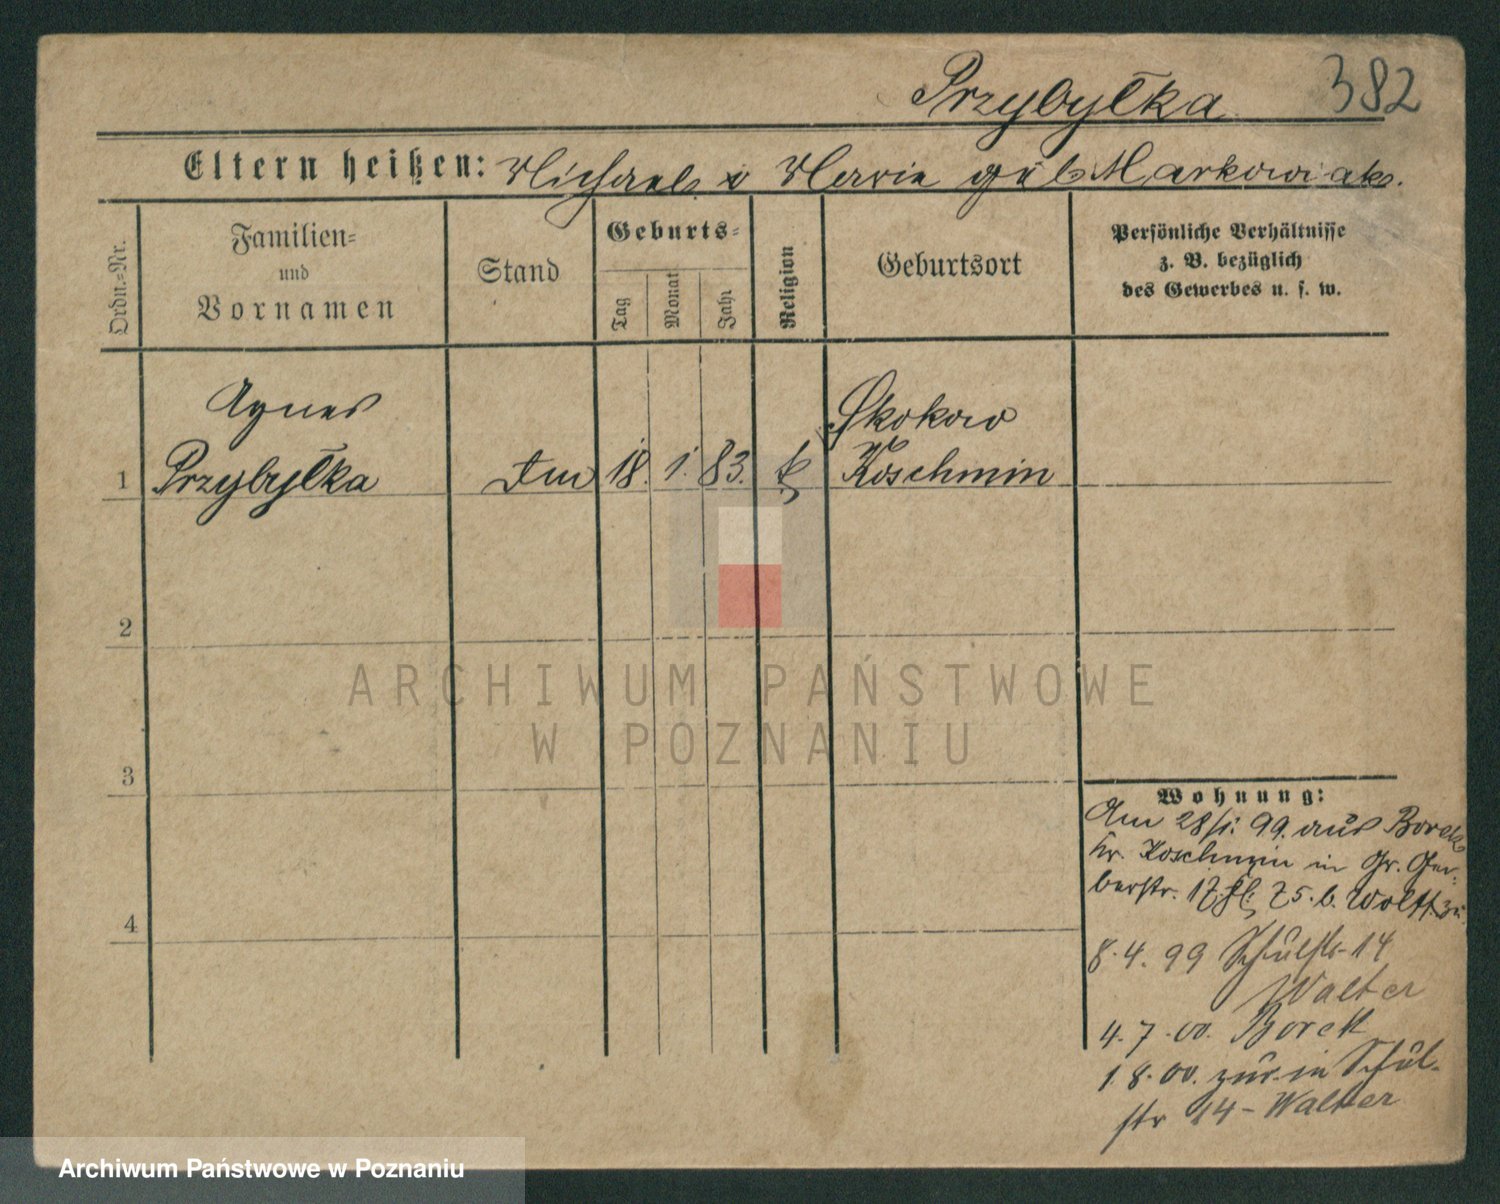 Przybyłka 382
Eltern heißen: Michael u Marie geb Markowiak.
Ordn.=Nr.
Familien=
und
Vornamen
Stand
Geburts=
Tag
Monat
Jahr
Religion
Geburtsort
Persönliche Verhältnisse
z. B. bezüglich
des Gewerbes u. s. w.
Agnes
Przybyłka
1
18. 1. 83.
k
Skokow
Koschmin
2
3
4
Wohnung:
Am 28/1. 99. aus Borek
Kr. Koschmin in Gr. Ger-
berstr. 17 b. Wolff zu.
8.4.99 Schulstr 14
Walter
4.7.00. Borek
1.8.00. zur. in Schul-
str 14 - Walter
ARCHIWUM PAŃSTWOWE
W POZNANIU
Archiwum Państwowe w Poznaniu